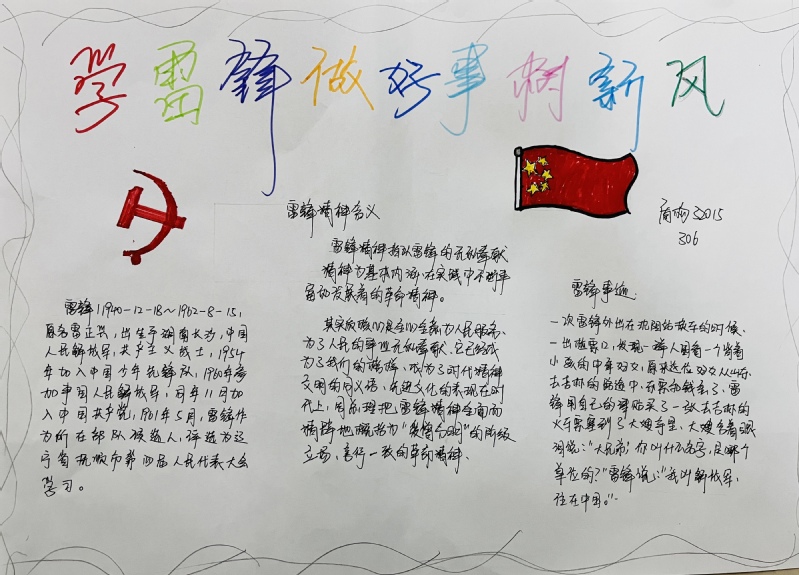 学雷锋做好事树新风
雷锋精神含义
雷锋精神指以雷锋的无私奉献
精神为基本内涵,在实践中不断丰
富和发展着的革命精神。
其实质和核心是全心全意为人民服务、
为了人民的事业无私奉献。它已经成
为了我们的榜样,成为了时代精神
文明的同义语、先进文化的表现在时
代上,周总理把雷锋精神全面而
精辟地概括为"爱憎分明"的阶级
立场、言行一致的革命精神、
3015
306
雷锋(1940-12-18~1962-8-15),
原名雷正兴,出生于湖南长沙,中国
人民解放军,共产主义战士,1954
年加入中国少年先锋队,1960年参
加中国人民解放军,同年11月加
入中国共产党。1961年5月,雷锋作
为所在部队候选人,评选为辽
宁省抚顺市第四届人民代表大会
学习。
雷锋事迹:
一次雷锋外出在沈阳站换车的时候、
一出检票口,发现一群人围着一个背着
小孩的中年妇女,原来这位妇女从山东
去吉林的路途中,车票和钱丢了、雷
锋用自己的津贴买了一张去吉林的
火车票塞到了大嫂手里、大嫂含着眼
泪说:"大兄弟,你叫什么名字,是哪个
单位的?"雷锋说:"我叫解放军,
住在中国。"